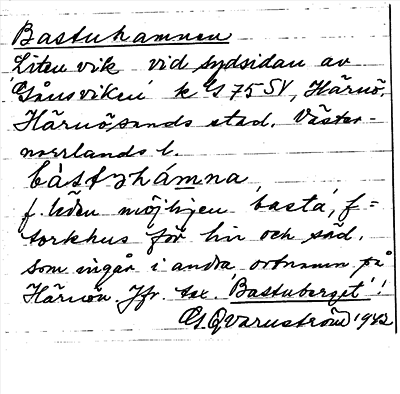 Bastuhamnen
Liten vik vid sydsidan av
'Gånsviken' k G 75 SV, Härnö,
Härnösands stad, Väster-
norrlands l.
bàstɜhámna
f. liden möjligen bastá, f =
torkhus för lin och säd,
som ingår i andra ortnamn på
Härnön. Jfr. tex. Bastuberget!
G. Qvarnström 1942